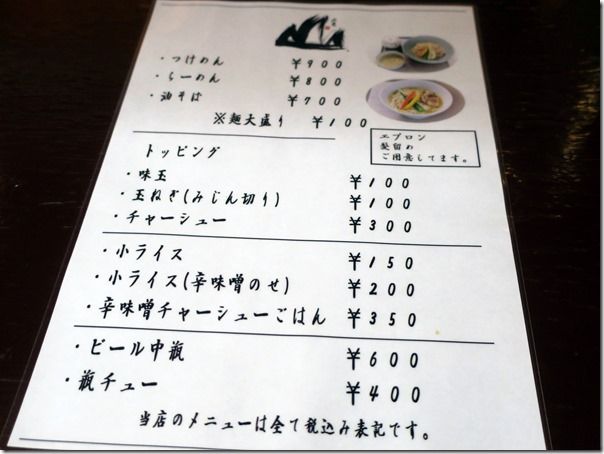 ・つけめん ￥９００
・らーめん ￥８００
・油そば ￥７００
※麺大盛り ￥１００
エプロン
髪留め
ご用意してます。
トッピング
・味玉 ￥１００
・玉ねぎ(みじん切り) ￥１００
・チャーシュー ￥３００
・小ライス ￥１５０
・小ライス(辛味噌のせ) ￥２００
・辛味噌チャーシューごはん ￥３５０
・ビール中瓶 ￥６００
・瓶チュー ￥４００
当店のメニューは全て税込み表記です。